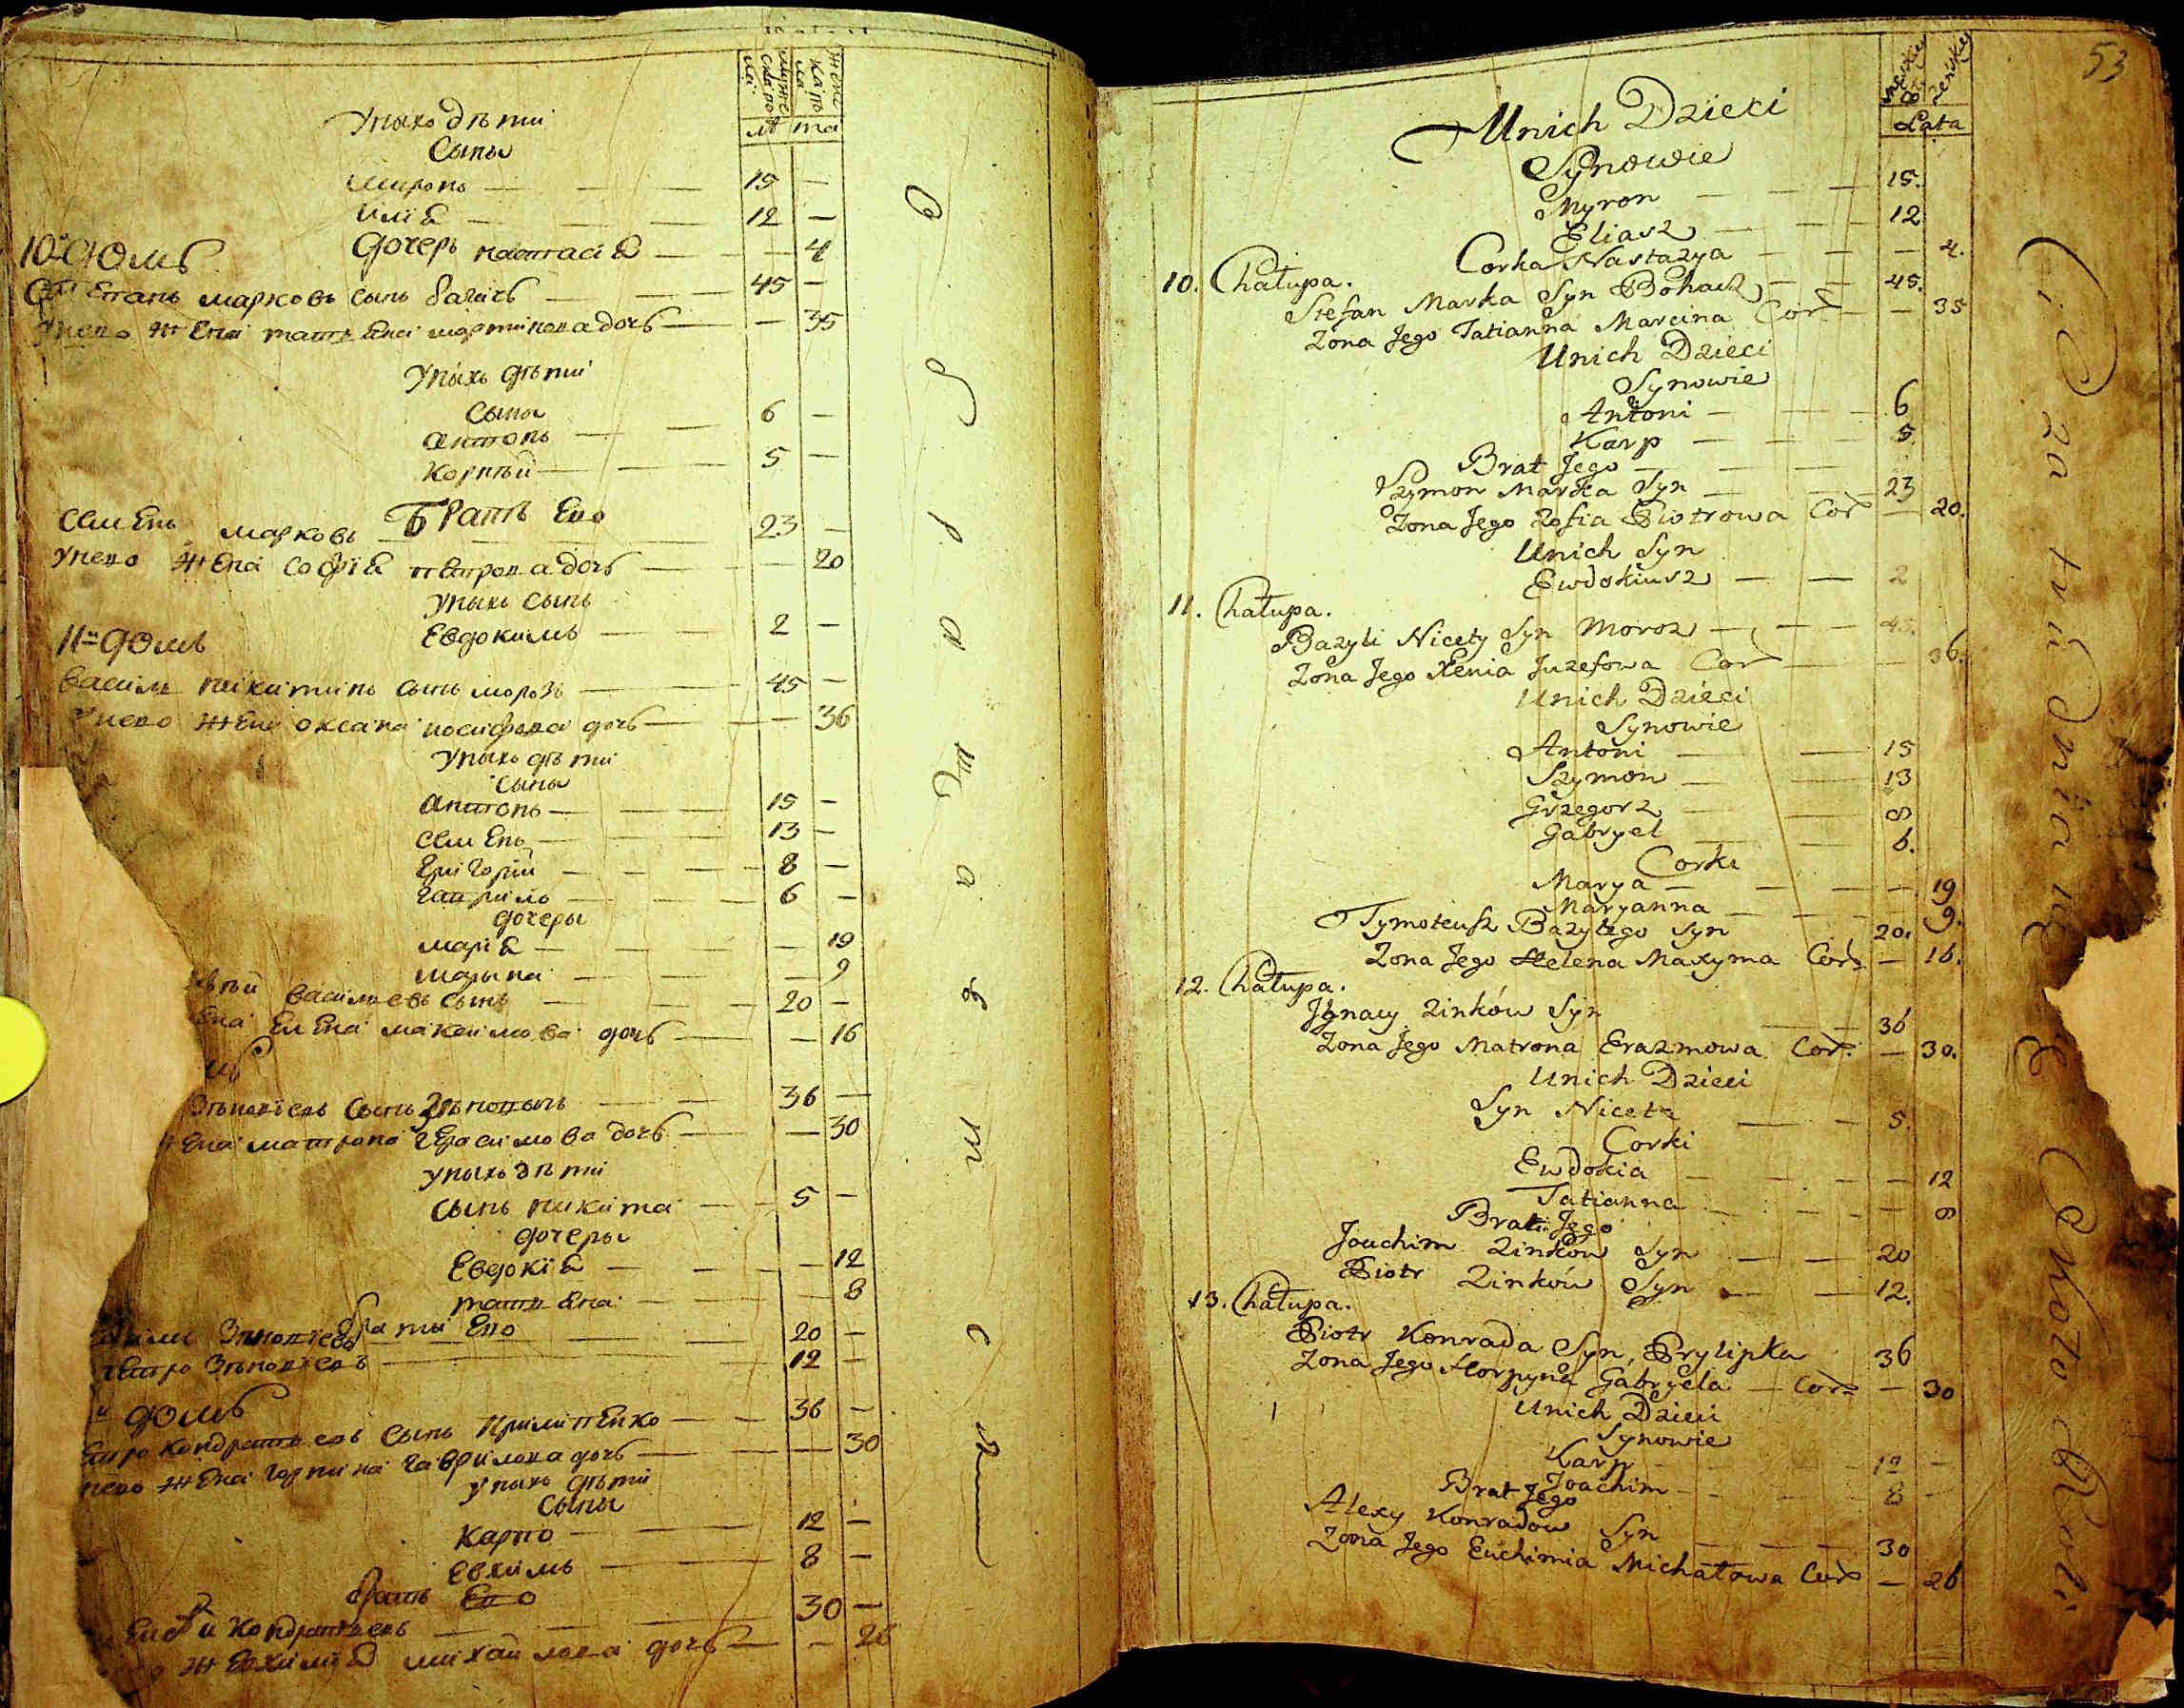 мужеска полу
женска пола
лѣта
Унихъ дѣти
Сыны
Миронъ — — — 15 —
Илиа — — — 12 —
Дочерь настасиа — — — 4
10й домъ
Степанъ марковъ сынъ багачь — — — 45 —
Унево жена татьена мартинова дочь — — 35
Унихъ дѣти
Сыны
антонъ — — 6 —
корнѣй — — — 5 —
Братъ Ево
семенъ марковъ — — — 23 —
Унево жена софиа петрова дочь — — 20
Унихъ сынъ
Евдокимъ — — 2 —
11й домъ
василь никитинъ сынъ морозъ — — 45 —
Унево жена оксана иосифова дочь — — — 36
Унихъ дѣти
сыны
антонъ — — — 15 —
семенъ — — — 13 —
григорий — — — 8 —
гаврило — — — 6 —
дочеры
мариа — — — 19
марына — — — 9
васильевъ сынъ — — — 20 —
ена Елена максимова дочь — — 16
мъ
зѣновиевъ сынъ — — 36 —
ена матрона герасимова дочь — — 30
унихъ дѣти
сынъ никита — — 5 —
дочеры
Евдокиа — — — 12
татьена — — — 8
браты Ево
зѣновиевъ — — — 20 —
петро зѣновиевъ — 12 —
й домъ
етро кондратьевъ сынъ прилипенко — — 36 —
нево жена горпина гаврилова дочь — — 30
унихъ дѣти
сыны
карпо — — — 12 —
Евхимъ — — — 8 —
братъ Ево
кондратьевъ — — — 30 —
Евхимиа михайлова дочь — — 26
53
męsky
żeńsky
Lata
Unich Dzieci
Synowie
Myron — — — 15.
Eliasz — — — 12
Corka Nastazya — — — 4.
10. Chałupa.
Stefan Marka Syn Bohacz — — 45.
Zona Jego Tatianna Marcina Cor — — 35
Unich Dzieci
Synowie
Antoni — — — 6
Karp — — — 5.
Brat Jego — — —
Szymon Marka Syn — — — 23
Zona Jego Zofia Piotrowa Cor — 20.
Unich Syn
Ewdokiusz — — 2
11. Chałupa.
Bazyli Nicety Syn Moroz — — — 45.
Zona Jego Xenia Juzefowa Cor — — 36.
Unich Dzieci
Synowie
Antoni — — 15
Szymon — — 13
Grzegorz — — 8
Gabryel — — 6.
Corki
Marya — — — — 19
Maryanna — — — — 9.
Tymoteusz Bazylego Syn 20.
Zona Jego Helena Maxyma Cor — 16.
12. Chałupa.
Ignacy Zinków Syn — — 36
Zona Jego Matrona Erazmowa Cor. — 30.
Unich Dzieci
Syn Niceta — — 5.
Corki
Ewdokia — — — — 12
Tatianna — — — — 8
Brati Jego
Joachim Zinków Syn — — 20
Piotr Zinków Syn — — 12.
13. Chałupa.
Piotr Konrada Syn, Prylipka 36
Zona Jego Horpyna Gabryela — Cor — 30
Unich Dzieci
Synowie
Karp — — — 12 —
Joachim — — — 8 —
Brat Jego
Alexy Konradow Syn — — — 30
Zona Jego Euchimia Michałowa Cor — 26